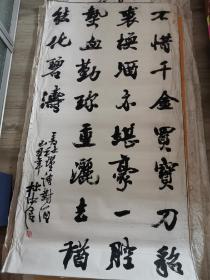 不惜千金買寶刀貂
裘換酒亦堪豪一腔
熱血勤珍重灑去猶
能化碧濤
詩對酒